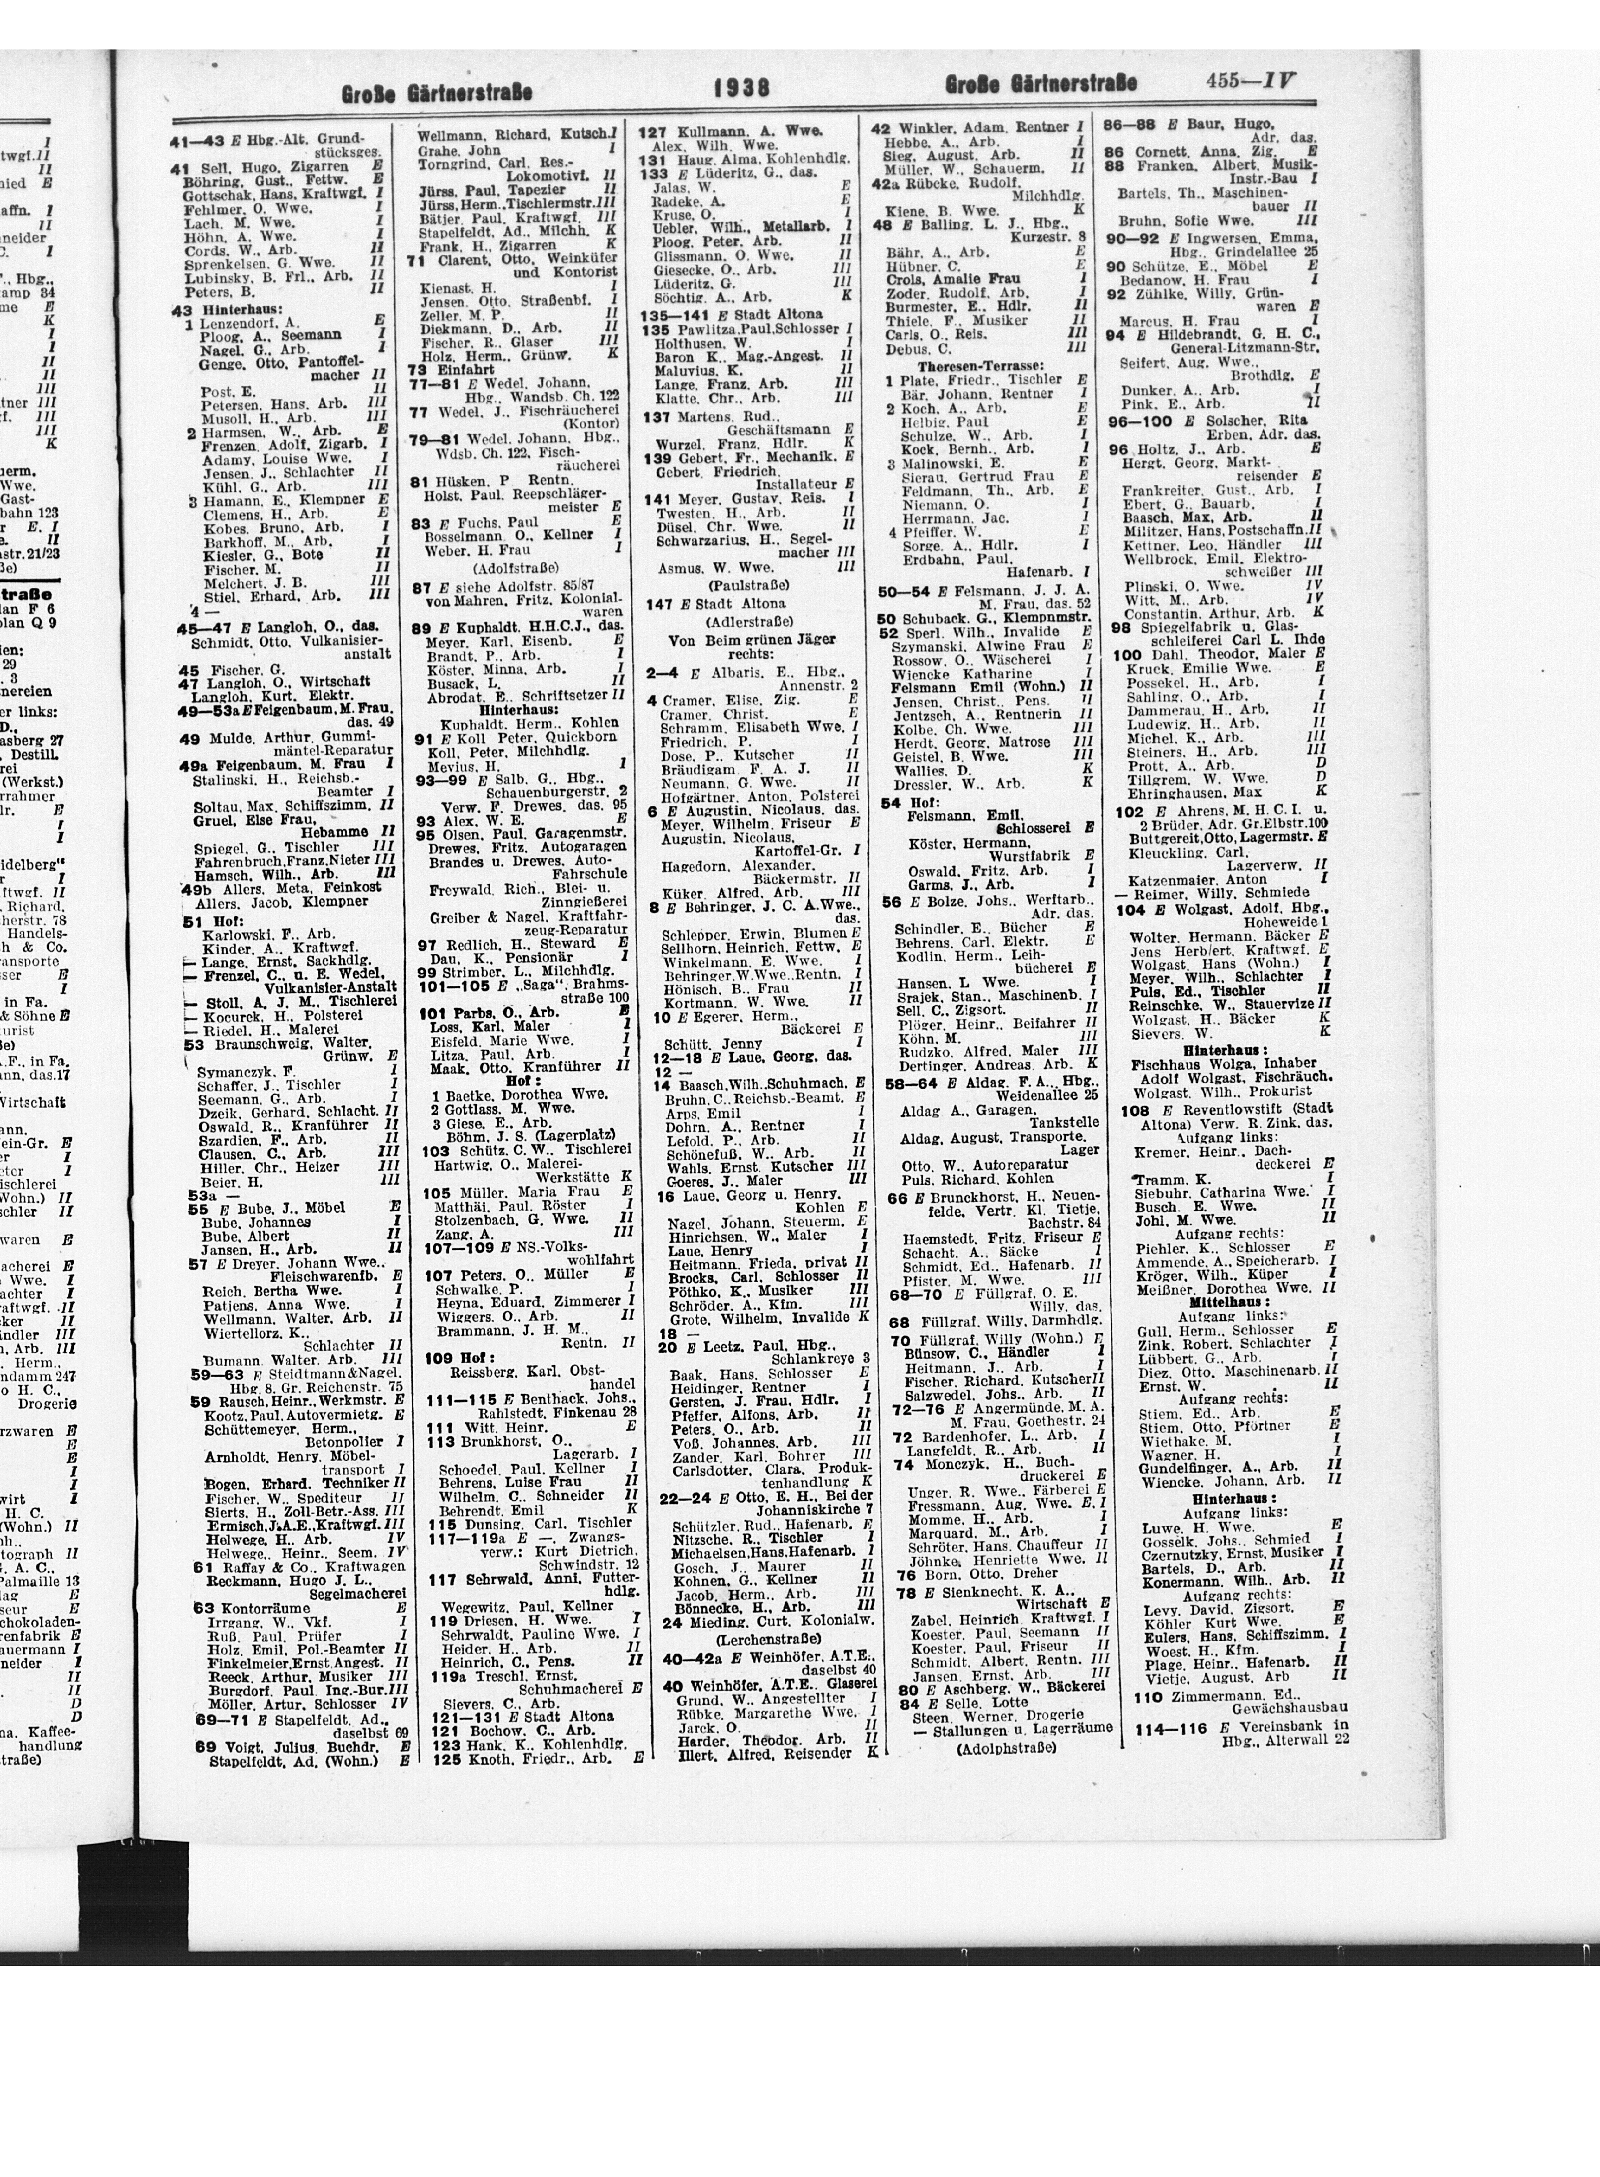 Große Gärtnerstraße
1938
Große Gärtnerstraße
455—IV
41—43 E Hbg.-Alt. Grund-
stücksges.
41 Sell, Hugo, Zigarren E
Böhring, Gust., Fettw. E
Gottschak, Hans, Kraftwgf. I
Fehlmer, O. Wwe. I
Lach, M. Wwe. I
Höhn, A. Wwe. I
Cords, W., Arb. II
Sprenkelsen, G. Wwe. II
Lubinsky, B. Frl., Arb. II
Peters, B. II
43 Hinterhaus:
1 Lenzendorf, A. E
Ploog, A., Seemann I
Nagel, G., Arb. I
Genge, Otto, Pantoffel-
macher II
Post, E. II
Petersen, Hans, Arb. III
Musoll, H., Arb. III
2 Harmsen, W., Arb. E
Frenzen, Adolf, Zigarb. I
Adamy, Louise Wwe. I
Jensen, J., Schlachter II
Kühl, G., Arb. III
3 Hamann, E., Klempner E
Clemens, H., Arb. E
Kobes, Bruno, Arb. I
Barkhoff, M., Arb. I
Kiesler, G., Bote II
Fischer, M. II
Melchert, J. B. III
Stiel, Erhard, Arb. III
4 —
45—47 E Langloh, O., das.
Schmidt, Otto, Vulkanisier-
anstalt
45 Fischer, G.
47 Langloh, O., Wirtschaft
Langloh, Kurt, Elektr.
49—53a E Feigenbaum, M. Frau,
das. 49
49 Mulde, Arthur, Gummi-
mäntel-Reparatur
49a Feigenbaum, M. Frau I
Stalinski, H., Reichsb.-
Beamter I
Soltau, Max, Schiffszimm. II
Gruel, Else Frau,
Hebamme II
Spiegel, G., Tischler III
Fahrenbruch, Franz, Nieter III
Hamsch, Wilh., Arb. III
49b Allers, Meta, Feinkost
Allers, Jacob, Klempner
51 Hof:
Karlowski, F., Arb.
Kinder, A., Kraftwgf.
— Lange, Ernst, Sackhdlg.
— Frenzel, C., u. E. Wedel,
Vulkanisier-Anstalt
— Stoll, A. J. M., Tischlerei
— Kocurek, H., Polsterei
— Riedel, H., Malerei
53 Braunschweig, Walter,
Grünw. E
Symanczyk, F. I
Schaffer, J., Tischler I
Seemann, G., Arb. I
Dzeik, Gerhard, Schlacht. II
Oswald, R., Kranführer II
Szardien, F., Arb. II
Clausen, C., Arb. III
Hiller, Chr., Heizer III
Beier, H. III
53a —
55 E Bube, J., Möbel E
Bube, Johannes I
Bube, Albert II
Jansen, H., Arb. II
57 E Dreyer, Johann Wwe.,
Fleischwarenfb. E
Reich, Bertha Wwe. I
Patjens, Anna Wwe. I
Wellmann, Walter, Arb. II
Wiertellorz, K.,
Schlachter II
Bumann, Walter, Arb. III
59—63 E Steidtmann & Nagel,
Hbg. 8, Gr. Reichenstr. 75
59 Rausch, Heinr., Werkmstr. E
Kootz, Paul, Autovermietg. E
Schüttemeyer, Herm.,
Betonpolier I
Arnholdt, Henry, Möbel-
transport I
Bogen, Erhard, Techniker II
Fischer, W., Spediteur II
Sierts, H., Zoll-Betr.-Ass. III
Ermisch, J. A. E., Kraftwgf. III
Helwege, H., Arb. IV
Helwege, Heinr., Seem. IV
61 Raffay & Co., Kraftwagen
Reckmann, Hugo J. L.,
Segelmacherei
63 Kontorräume E
Irrgang, W., Vkf. I
Ruß, Paul, Prüfer I
Holz, Emil, Pol.-Beamter II
Finkelmeier, Ernst, Angest. II
Reeck, Arthur, Musiker III
Burgdorf, Paul, Ing.-Bur. III
Möller, Artur, Schlosser IV
69—71 E Stapelfeldt, Ad.,
daselbst 69
69 Voigt, Julius, Buchdr. E
Stapelfeldt, Ad. (Wohn.) E
Wellmann, Richard, Kutsch. I
Grahe, John I
Torngrind, Carl, Res.-
Lokomotivf. II
Jürss, Paul, Tapezier II
Jürss, Herm., Tischlermstr. III
Bätjer, Paul, Kraftwgf. III
Stapelfeldt, Ad., Milchh. K
Frank, H., Zigarren K
71 Clarent, Otto, Weinküfer
und Kontorist
Kienast, H. I
Jensen, Otto, Straßenbf. I
Zeller, M. P. II
Diekmann, D., Arb. II
Fischer, R., Glaser III
Holz, Herm., Grünw. K
73 Einfahrt
77—81 E Wedel, Johann,
Hbg., Wandsb. Ch. 122
77 Wedel, J., Fischräucherei
(Kontor)
79—81 Wedel, Johann, Hbg.,
Wdsb. Ch. 122, Fisch-
räucherei
81 Hüsken, P Rentn.
Holst, Paul, Reepschläger-
meister E
83 E Fuchs, Paul E
Bosselmann, O., Kellner I
Weber, H. Frau I
(Adolfstraße)
87 E siehe Adolfstr. 85/87
von Mahren, Fritz, Kolonial-
waren
89 E Kuphaldt, H.H.C.J., das.
Meyer, Karl, Eisenb. E
Brandt, P., Arb. I
Köster, Minna, Arb. I
Busack, L. II
Abrodat, E., Schriftsetzer II
Hinterhaus:
Kuphaldt, Herm., Kohlen
91 E Koll Peter, Quickborn
Koll, Peter, Milchhdlg.
Mevius, H. I
93—99 E Salb, G., Hbg.,
Schauenburgerstr. 2
Verw. F. Drewes, das. 95
93 Alex, W. E. E
95 Olsen, Paul, Garagenmstr.
Drewes, Fritz, Autogaragen
Brandes u. Drewes, Auto-
Fahrschule
Freywald, Rich., Blei- u.
Zinngießerei
Greiber & Nagel, Kraftfahr-
zeug-Reparatur
97 Redlich, H., Steward E
Dau, K., Pensionär I
99 Strimber, L., Milchhdlg.
101—105 E „Saga“, Brahms-
straße 100
101 Parbs, O., Arb. E
Loss, Karl, Maler I
Eisfeld, Marie Wwe. I
Litza, Paul, Arb. I
Maak, Otto, Kranführer II
Hof:
1 Baetke, Dorothea Wwe.
2 Gottlass, M. Wwe.
3 Giese, E., Arb.
Böhm, J. S. (Lagerplatz)
103 Schütz, C. W., Tischlerei
Hartwig, O., Malerei-
Werkstätte K
105 Müller, Maria Frau E
Matthäi, Paul, Röster I
Stolzenbach, G. Wwe. II
Zang, A. III
107—109 E NS.-Volks-
wohlfahrt
107 Peters, O., Müller E
Schwalke, P. I
Heyna, Eduard, Zimmerer I
Wiggers, O., Arb. II
Brammann, J. H. M.,
Rentn. II
109 Hof:
Reissberg, Karl, Obst-
handel
111—115 E Benthack, Johs.,
Rahlstedt, Finkenau 28
111 Witt, Heinr. E
113 Brunkhorst, O.,
Lagerarb. I
Schoedel, Paul, Kellner I
Behrens, Luise Frau II
Wilhelm, C., Schneider II
Behrendt, Emil K
115 Dunsing, Carl, Tischler
117—119a E —, Zwangs-
verw.: Kurt Dietrich,
Schwindstr. 12
117 Sehrwald, Anni, Futter-
hdlg.
Wegewitz, Paul, Kellner
119 Driesen, H. Wwe. I
Sehrwaldt, Pauline Wwe. I
Heider, H., Arb. II
Heinrich, C., Pens. II
119a Treschl, Ernst,
Schuhmacherei E
Sievers, C., Arb.
121—131 E Stadt Altona
121 Bochow, C., Arb.
123 Hank, K., Kohlenhdlg.
125 Knoth, Friedr., Arb. E
127 Kullmann, A. Wwe.
Alex, Wilh. Wwe.
131 Haug, Alma, Kohlenhdlg.
133 E Lüderitz, G., das.
Jalas, W. E
Radeke, A. E
Kruse, O. I
Uebler, Wilh., Metallarb. I
Ploog, Peter, Arb. II
Glissmann, O. Wwe. II
Giesecke, O., Arb. III
Lüderitz, G. III
Söchtig, A., Arb. K
135—141 E Stadt Altona
135 Pawlitza, Paul, Schlosser I
Holthusen, W. I
Baron K., Mag.-Angest. II
Maluvius, K. II
Lange, Franz, Arb. III
Klatte, Chr., Arb. III
137 Martens, Rud.,
Geschäftsmann E
Wurzel, Franz, Hdlr. K
139 Gebert, Fr., Mechanik. E
Gebert, Friedrich,
Installateur E
141 Meyer, Gustav, Reis. I
Twesten, H., Arb. II
Düsel, Chr. Wwe. II
Schwarzarius, H., Segel-
macher III
Asmus, W. Wwe. III
(Paulstraße)
147 E Stadt Altona
(Adlerstraße)
Von Beim grünen Jäger
rechts:
2—4 E Albaris, E., Hbg.,
Annenstr. 2
4 Cramer, Elise, Zig. E
Cramer, Christ. E
Schramm, Elisabeth Wwe. I
Friedrich, P. I
Dose, P., Kutscher II
Bräudigam, F. A. J. II
Neumann, G. Wwe. II
Hofgärtner, Anton, Polsterei
6 E Augustin, Nicolaus, das.
Meyer, Wilhelm, Friseur E
Augustin, Nicolaus,
Kartoffel-Gr. I
Hagedorn, Alexander,
Bäckermstr. II
Küker, Alfred, Arb. III
8 E Behringer, J. C. A. Wwe.,
das.
Schlepper, Erwin, Blumen E
Sellhorn, Heinrich, Fettw. E
Winkelmann, E. Wwe. I
Behringer, W. Wwe., Rentn. I
Hönisch, B., Frau II
Kortmann, W. Wwe. II
10 E Egerer, Herm.,
Bäckerei E
Schütt, Jenny I
12—18 E Laue, Georg, das.
12 —
14 Baasch, Wilh., Schuhmach. E
Bruhn, C., Reichsb.-Beamt. E
Arps, Emil I
Dohrn, A., Rentner I
Lefold, P., Arb. II
Schönefuß, W., Arb. II
Wahls, Ernst, Kutscher III
Goeres, J., Maler III
16 Laue, Georg u. Henry,
Kohlen E
Nagel, Johann, Steuerm. E
Hinrichsen, W., Maler I
Laue, Henry I
Heitmann, Frieda, privat II
Brocks, Carl, Schlosser II
Pöthko, K., Musiker III
Schröder, A., Kfm. III
Grote, Wilhelm, Invalide K
18 —
20 E Leetz, Paul, Hbg.,
Schlankreye 3
Baak, Hans, Schlosser E
Heidinger, Rentner I
Gersten, J. Frau, Hdlr. I
Pfeffer, Alfons, Arb. II
Peters, O., Arb. II
Voß, Johannes, Arb. III
Zander, Karl, Bohrer III
Carlsdotter, Clara, Produk-
tenhandlung K
22—24 E Otto, E. H., Bei der
Johanniskirche 7
Schützler, Rud., Hafenarb. E
Nitzsche, R., Tischler I
Michaelsen, Hans, Hafenarb. I
Gosch, J., Maurer II
Kohnen, G., Kellner II
Jacob, Herm., Arb. III
Bönnecke, H., Arb. III
24 Mieding, Curt, Kolonialw.
(Lerchenstraße)
40—42a E Weinhöfer, A.T.E.,
daselbst 40
40 Weinhöfer, A.T.E., Glaserei
Grund, W., Angestellter I
Rübke, Margarethe Wwe. I
Jarck, O. II
Harder, Theodor, Arb. II
Illert, Alfred, Reisender K
42 Winkler, Adam, Rentner I
Hebbe, A., Arb. I
Sieg, August, Arb. II
Müller, W., Schauerm. II
42a Rübcke, Rudolf,
Milchhdlg.
Kiene, B. Wwe. K
48 E Balling, L. J., Hbg.,
Kurzestr. 8
Bähr, A., Arb. E
Hübner, C. E
Crols, Amalie Frau I
Zoder, Rudolf, Arb. I
Burmester, E., Hdlr. II
Thiele, F., Musiker II
Carls, O., Reis. III
Debus, C. III
Theresen-Terrasse:
1 Plate, Friedr., Tischler E
Bär, Johann, Rentner I
2 Koch, A., Arb. E
Helbig, Paul E
Schulze, W., Arb. I
Kock, Bernh., Arb. I
3 Malinowski, E. E
Sierau, Gertrud Frau E
Feldmann, Th., Arb. E
Niemann, O. I
Herrmann, Jac. I
4 Pfeiffer, W. E
Sorge, A., Hdlr. I
Erdbahn, Paul,
Hafenarb. I
50—54 E Felsmann, J. J. A.
M. Frau, das. 52
50 Schuback, G., Klempnmstr.
52 Sperl, Wilh., Invalide E
Szymanski, Alwine Frau E
Rossow, O., Wäscherei I
Wiencke Katharine I
Felsmann Emil (Wohn.) II
Jensen, Christ., Pens. II
Jentzsch, A., Rentnerin II
Kolbe, Ch. Wwe. III
Herdt, Georg, Matrose III
Geistel, B. Wwe. III
Wallies, D. K
Dressler, W., Arb. K
54 Hof:
Felsmann, Emil,
Schlosserei E
Köster, Hermann,
Wurstfabrik E
Oswald, Fritz, Arb. I
Garms, J., Arb. I
56 E Bolze, Johs., Werftarb.,
Adr. das.
Schindler, E., Bücher E
Behrens, Carl, Elektr. E
Kodlin, Herm., Leih-
bücherei E
Hansen, L Wwe. I
Srajek, Stan., Maschinenb. I
Sell, C., Zigsort. II
Plöger, Heinr., Beifahrer II
Köhn, M. III
Rudzko, Alfred, Maler III
Dertinger, Andreas, Arb. K
58—64 E Aldag, F. A., Hbg.,
Weidenallee 25
Aldag A., Garagen,
Tankstelle
Aldag, August, Transporte,
Lager
Otto, W., Autoreparatur
Puls, Richard, Kohlen
66 E Brunckhorst, H., Neuen-
felde, Vertr. Kl. Tietje,
Bachstr. 84
Haemstedt, Fritz, Friseur E
Schacht, A., Säcke I
Schmidt, Ed., Hafenarb. II
Pfister, M. Wwe. III
68—70 E Füllgraf, O. E.
Willy, das.
68 Füllgraf, Willy, Darmhdlg.
70 Füllgraf, Willy (Wohn.) E
Bünsow, C., Händler I
Heitmann, J., Arb. I
Fischer, Richard, Kutscher II
Salzwedel, Johs., Arb. II
72—76 E Angermünde, M. A.
M. Frau, Goethestr. 24
72 Bardenhofer, L., Arb. I
Langfeldt, R., Arb. II
74 Monczyk, H., Buch-
druckerei E
Unger, R. Wwe., Färberei E
Fressmann, Aug. Wwe. E, I
Momme, H., Arb. I
Marquard, M., Arb. I
Schröter, Hans, Chauffeur II
Jöhnke, Henriette Wwe. II
76 Born, Otto, Dreher
78 E Sienknecht, K. A.,
Wirtschaft E
Zabel, Heinrich, Kraftwgf. I
Koester, Paul, Seemann II
Koester, Paul, Friseur II
Schmidt, Albert, Rentn. III
Jansen, Ernst, Arb. III
80 E Aschberg, W., Bäckerei
84 E Selle, Lotte
Steen, Werner, Drogerie
— Stallungen u. Lagerräume
(Adolphstraße)
86—88 E Baur, Hugo,
Adr. das.
86 Cornett, Anna, Zig. E
88 Franken, Albert, Musik-
Instr.-Bau I
Bartels, Th., Maschinen-
bauer II
Bruhn, Sofie Wwe. III
90—92 E Ingwersen, Emma,
Hbg., Grindelallee 25
90 Schütze, E., Möbel E
Bedanow, H. Frau I
92 Zühlke, Willy, Grün-
waren E
Marcus, H. Frau I
94 E Hildebrandt, G. H. C.,
General-Litzmann-Str.
Seifert, Aug. Wwe.,
Brothdlg. E
Dunker, A., Arb. I
Pink, E., Arb. II
96—100 E Solscher, Rita
Erben, Adr. das.
96 Holtz, J., Arb. E
Hergt, Georg, Markt-
reisender E
Frankreiter, Gust., Arb. I
Ebert, G., Bauarb. I
Baasch, Max, Arb. II
Militzer, Hans, Postschaffn. II
Kettner, Leo, Händler III
Wellbrock, Emil, Elektro-
schweißer III
Plinski, O. Wwe. IV
Witt, M., Arb. IV
Constantin, Arthur, Arb. K
98 Spiegelfabrik u. Glas-
schleiferei Carl L. Ihde
100 Dahl, Theodor, Maler E
Kruck, Emilie Wwe. E
Possekel, H., Arb. I
Sahling, O., Arb. I
Dammerau, H., Arb. II
Ludewig, H., Arb. II
Michel, K., Arb. III
Steiners, H., Arb. III
Prott, A., Arb. D
Tillgrem, W. Wwe. D
Ehringhausen, Max K
102 E Ahrens, M. H. C. I. u.
2 Brüder, Adr. Gr. Elbstr. 100
Buttgereit, Otto, Lagermstr. E
Kleuckling, Carl,
Lagerverw. II
Katzenmaier, Anton I
— Reimer, Willy, Schmiede
104 E Wolgast, Adolf, Hbg.,
Hoheweide 1
Wolter, Hermann, Bäcker E
Jens Herb/ert, Kraftwgf. E
Wolgast, Hans (Wohn.) I
Meyer, Wilh., Schlachter I
Puls, Ed., Tischler II
Reinschke, W., Stauervize II
Wolgast, H., Bäcker K
Sievers, W. K
Hinterhaus:
Fischhaus Wolga, Inhaber
Adolf Wolgast, Fischräuch.
Wolgast, Wilh., Prokurist
108 E Reventlowstift (Stadt
Altona) Verw. R. Zink, das.
Aufgang links:
Kremer, Heinr., Dach-
deckerei E
Tramm, K. I
Siebuhr, Catharina Wwe. I
Busch, E. Wwe. II
Johl, M. Wwe. II
Aufgang rechts:
Piehler, K., Schlosser E
Ammende, A., Speicherarb. I
Kröger, Wilh., Küper I
Meißner, Dorothea Wwe. II
Mittelhaus:
Aufgang links:
Gull, Herm., Schlosser E
Zink, Robert, Schlachter I
Lübbert, G., Arb. I
Diez, Otto, Maschinenarb. II
Ernst, W. II
Aufgang rechts:
Stiem, Ed., Arb. E
Stiem, Otto, Pförtner E
Wiethake, M. I
Wagner, H. I
Gundelfinger, A., Arb. II
Wiencke, Johann, Arb. II
Hinterhaus:
Aufgang links:
Luwe, H. Wwe. E
Gosselk, Johs., Schmied I
Czernutzky, Ernst, Musiker I
Bartels, D., Arb. II
Konermann, Wilh., Arb. II
Aufgang rechts:
Levy, David, Zigsort. E
Köhler Kurt Wwe. E
Eulers, Hans, Schiffszimm. I
Woest, H., Kfm. I
Plage, Heinr., Hafenarb. II
Vietje, August, Arb II
110 Zimmermann, Ed.,
Gewächshausbau
114—116 E Vereinsbank in
Hbg., Alterwall 22